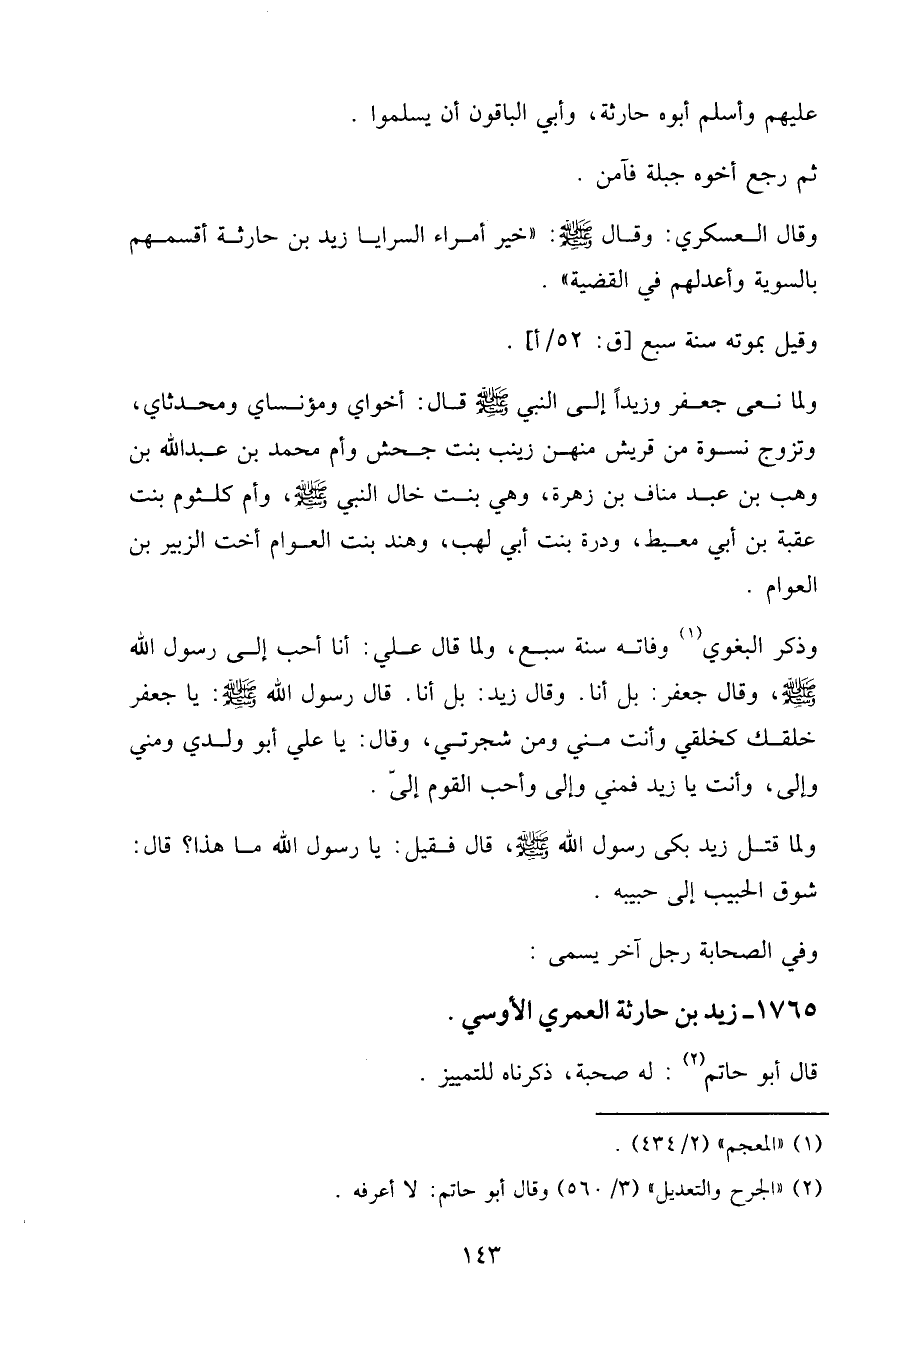 عليهم وأسلم أبوه حارثة، وأبي الباقون أن يسلموا .
ثم رجع أخوه جبلة فآمن .
وقال العسكري: وقال ﷺ: «خير أمراء السرايا زيد بن حارثة أقسمهم
بالسوية وأعدلهم في القضية» .
وقيل بموته سنة سبع [ق: ٥٢/أ] .
ولما نعى جعفر وزيداً إلى النبي ﷺ قال: أخواي ومؤنساي ومحدثاي،
وتزوج نسوة من قريش منهن زينب بنت جحش وأم محمد بن عبدالله بن
وهب بن عبد مناف بن زهرة، وهي بنت خال النبي ﷺ، وأم كلثوم بنت
عقبة بن أبي معيط، ودرة بنت أبي لهب، وهند بنت العوام أخت الزبير بن
العوام .
وذكر البغوي(١) وفاته سنة سبع، ولما قال علي: أنا أحب إلى رسول الله
ﷺ، وقال جعفر: بل أنا. وقال زيد: بل أنا. قال رسول الله ﷺ: يا جعفر
خلقك كخلقي وأنت مني ومن شجرتي، وقال: يا علي أبو ولدي ومني
وإلى، وأنت يا زيد فمني وإلى وأحب القوم إلىّ .
ولما قتل زيد بكى رسول الله ﷺ، قال فقيل: يا رسول الله ما هذا؟ قال:
شوق الحبيب إلى حبيبه .
وفي الصحابة رجل آخر يسمى :
١٧٦٥ـ زيد بن حارثة العمري الأوسي .
قال أبو حاتم(٢) : له صحبة، ذكرناه للتمييز .
(١) «المعجم» (٤٣٤/٢) .
(٢) «الجرح والتعديل» (٥٦٠/٣) وقال أبو حاتم: لا أعرفه .
١٤٣